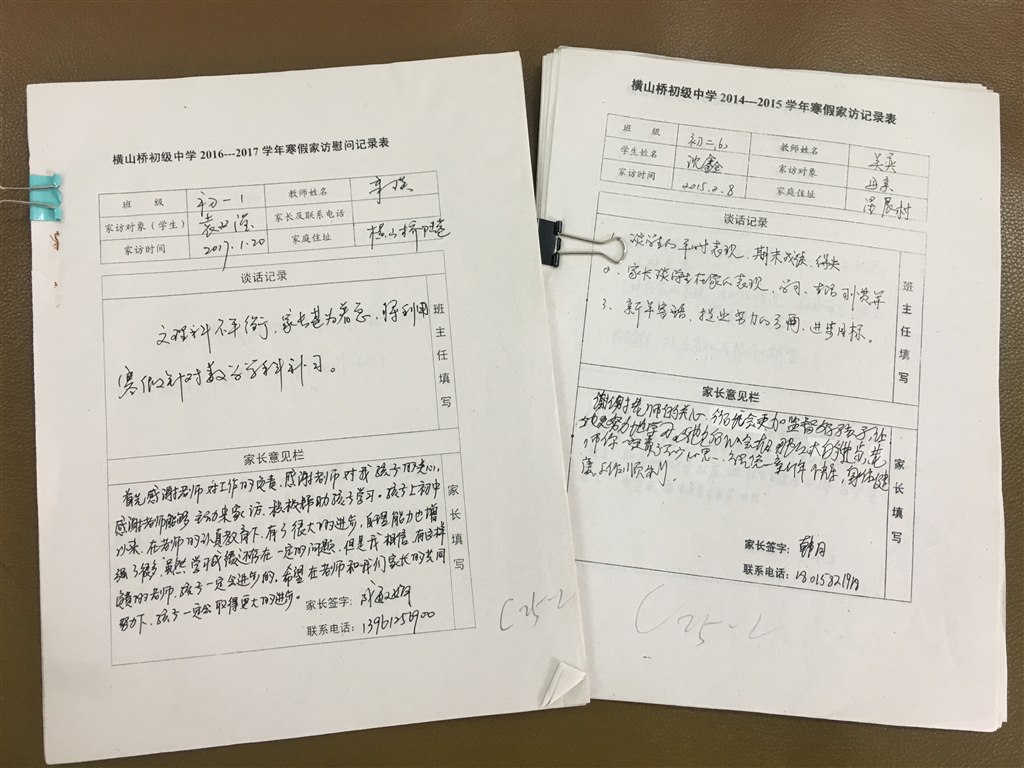 横山桥初级中学 2016---2017 学年寒假家访慰问记录表
班 级 初一1 教师姓名
家访对象（学生） 袁 家长及联系电话
家访时间 2017.1.20 家庭住址 横山桥
谈话记录
文理科不平衡，家长甚为着急，将利用
寒假针对数学学科补习。
班主任填写
家长意见栏
首先感谢老师对工作的负责，感谢老师对我孩子的关心，
感谢老师能够主动来家访，积极帮助孩子学习。孩子上初中
以来，在老师的认真教育下，有了很大的进步，自理能力也增
强了很多，虽然学习成绩还存在一定的问题，但是我相信，有这样
负责的老师，孩子一定会进步的，希望在老师和我们家长的共同
努力下，孩子一定会取得更大的进步。
家长签字：
联系电话：13961256900
家长填写
C25-2
横山桥初级中学 2014---2015 学年寒假家访记录表
班 级 初二16 教师姓名 吴英
学生姓名 沈鑫 家访对象
家访时间 2015.2.8 家庭住址 村
谈话记录
1、谈学生的平时表现、期末成绩、得失
2、家长谈学生在家的表现、学习、生活习惯等
3、新年寄语、提出努力的方向、进步目标。
班主任填写
家长意见栏
谢谢老师的关心，我们会更加监督好孩子，让
他更努力地学习，
身体健
康，工作顺利
家长签字：韩月
联系电话：
家长填写
C25-2